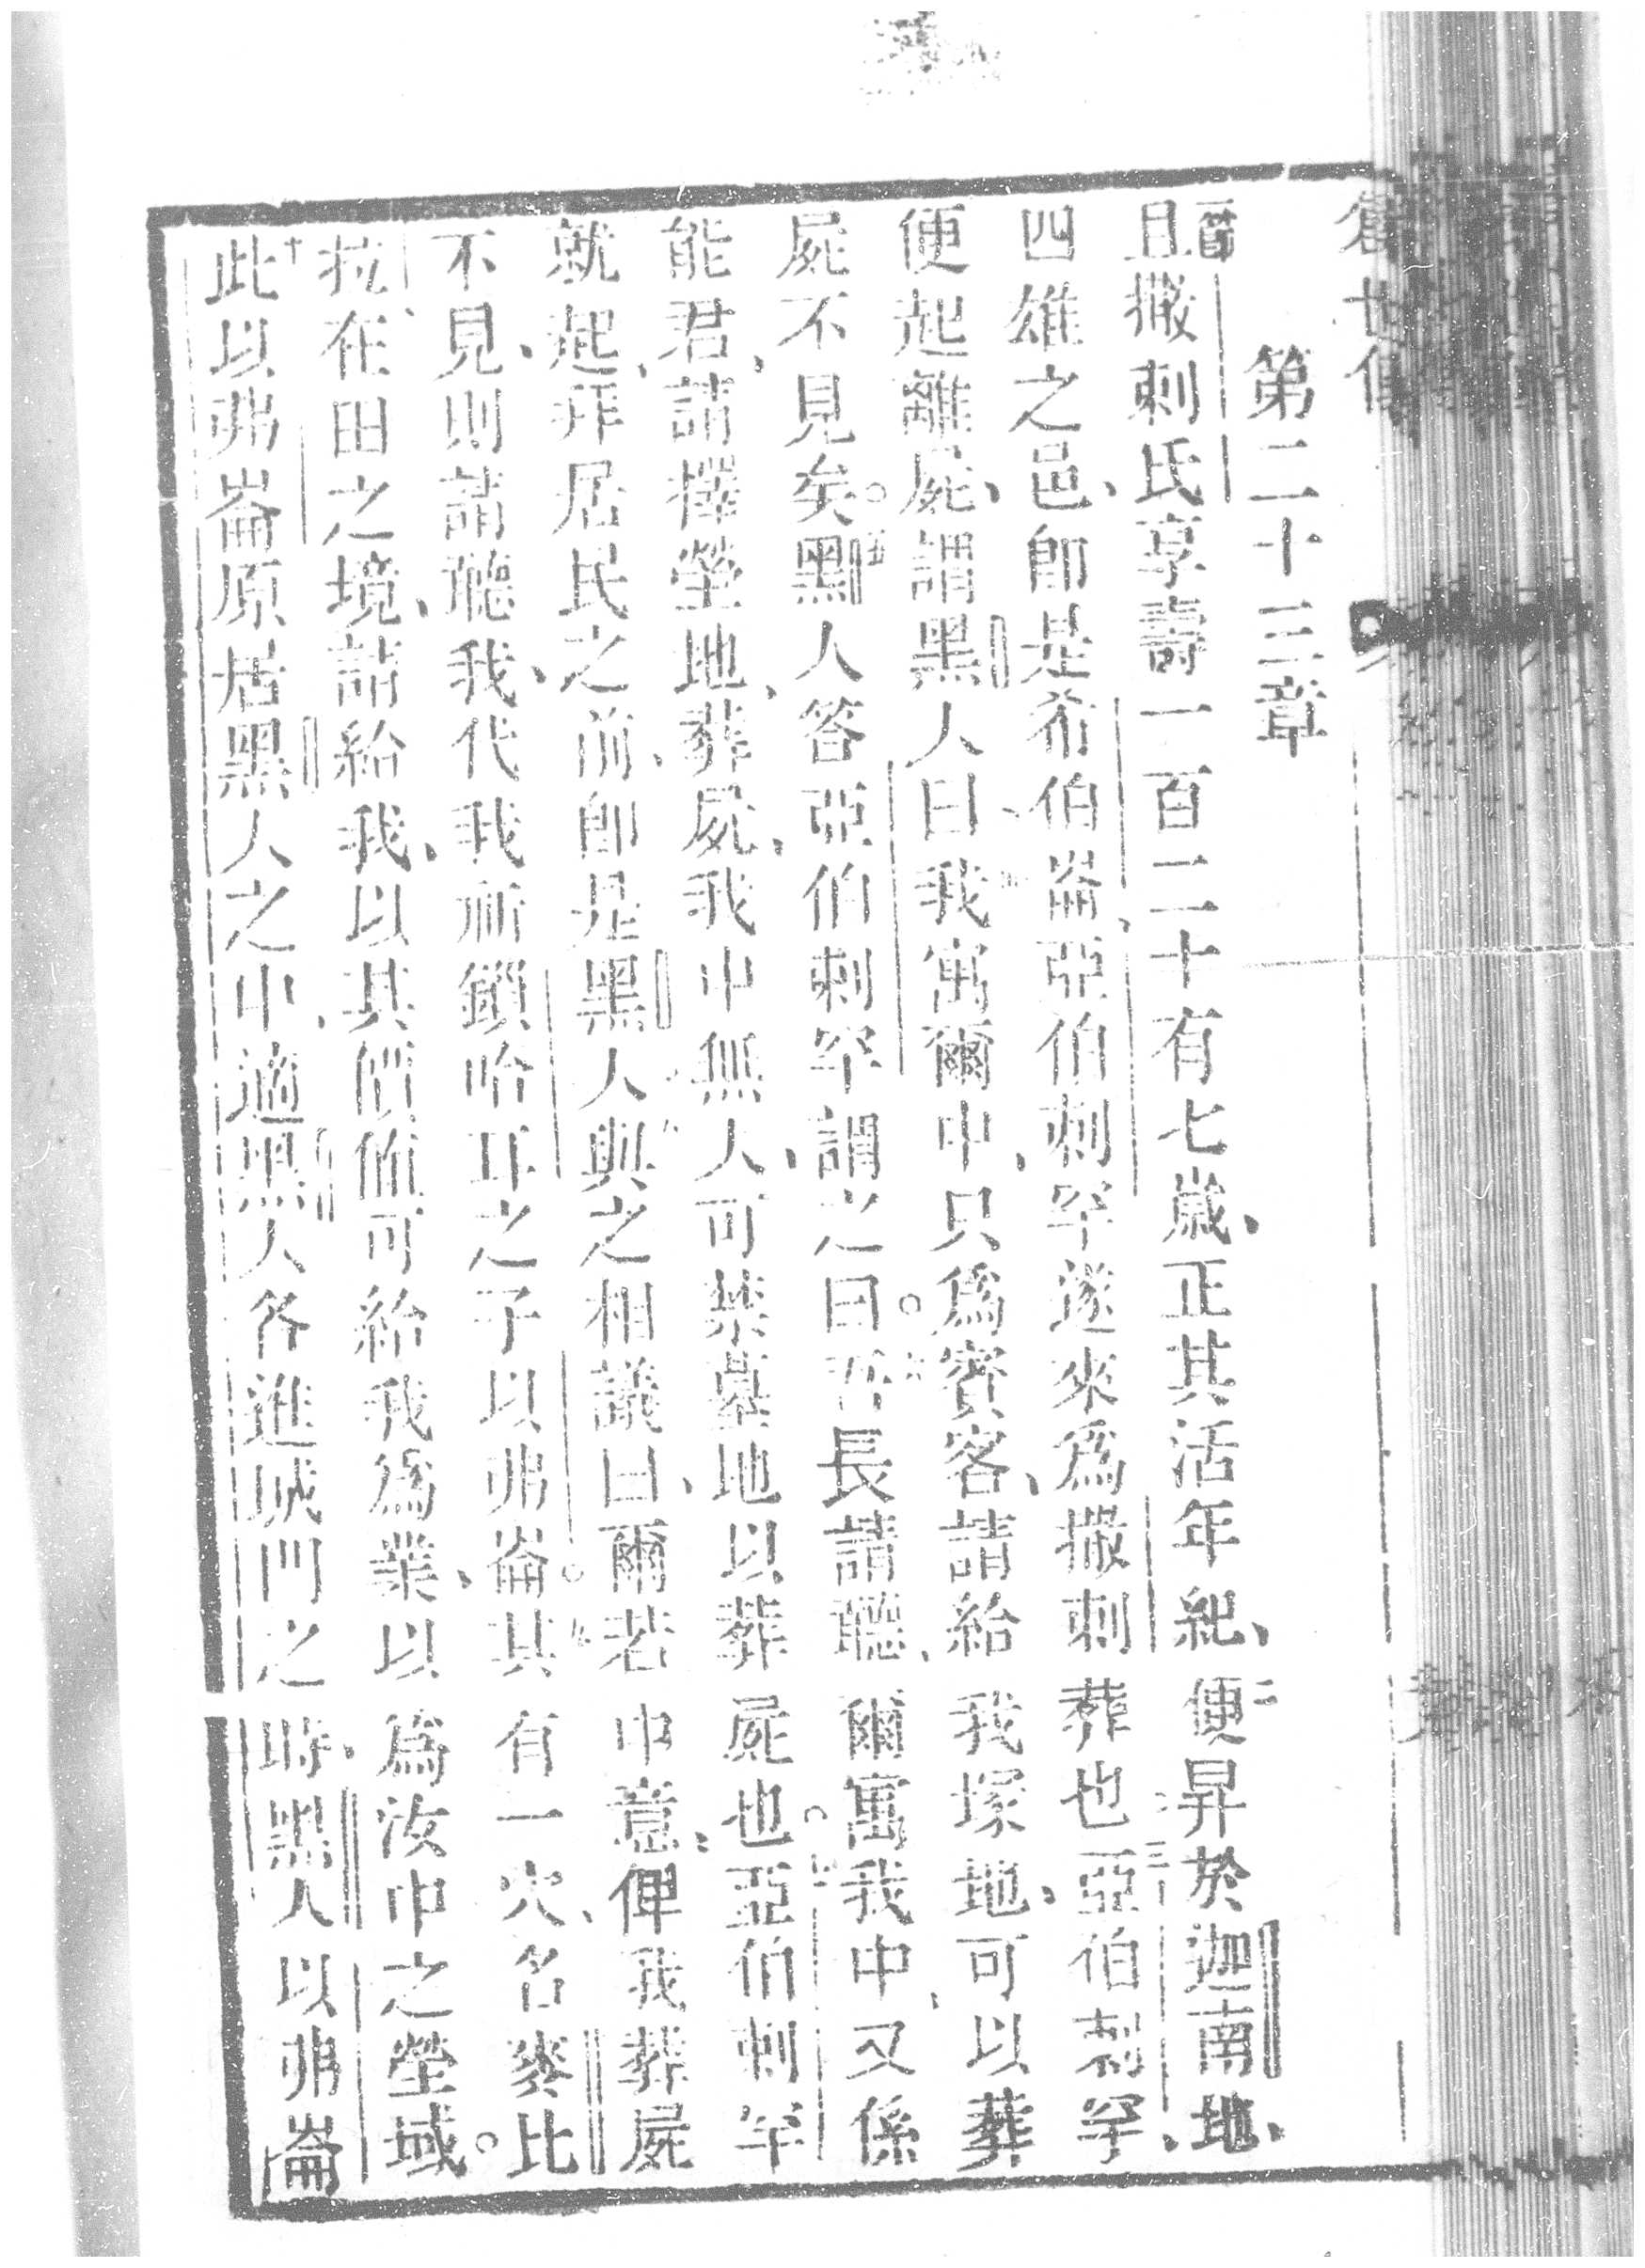 創世傳
第二十三章
一節且撒剌氏享壽一百二十有七歲、正其活年紀、二便昇於迦南地、
四雄之邑、即是希伯崙、亞伯剌罕遂來為撒剌葬也三亞伯剌罕、
便起離屍、謂黑人曰、四我寓爾中、只為賓客、請給我塚地、可以葬
屍不見矣。五黑人答亞伯剌罕、謂之曰。六吾長請聽、爾寓我中、又係
能君、請擇塋地、葬屍、我中無人可禁墓地以葬屍也。七亞伯剌罕
就起、拜居民之前、即是黑人、八與之相議曰、爾若中意、俾我葬屍
不見、則請聽我、代我祈鎖哈耳之子以弗崙。九其有一穴、名麥比
拉、在田之境、請給我、以其價值可給我為業、以為汝中之塋域。
十此以弗崙原居黑人之中、適黑人各進城門之時、黑人以弗崙